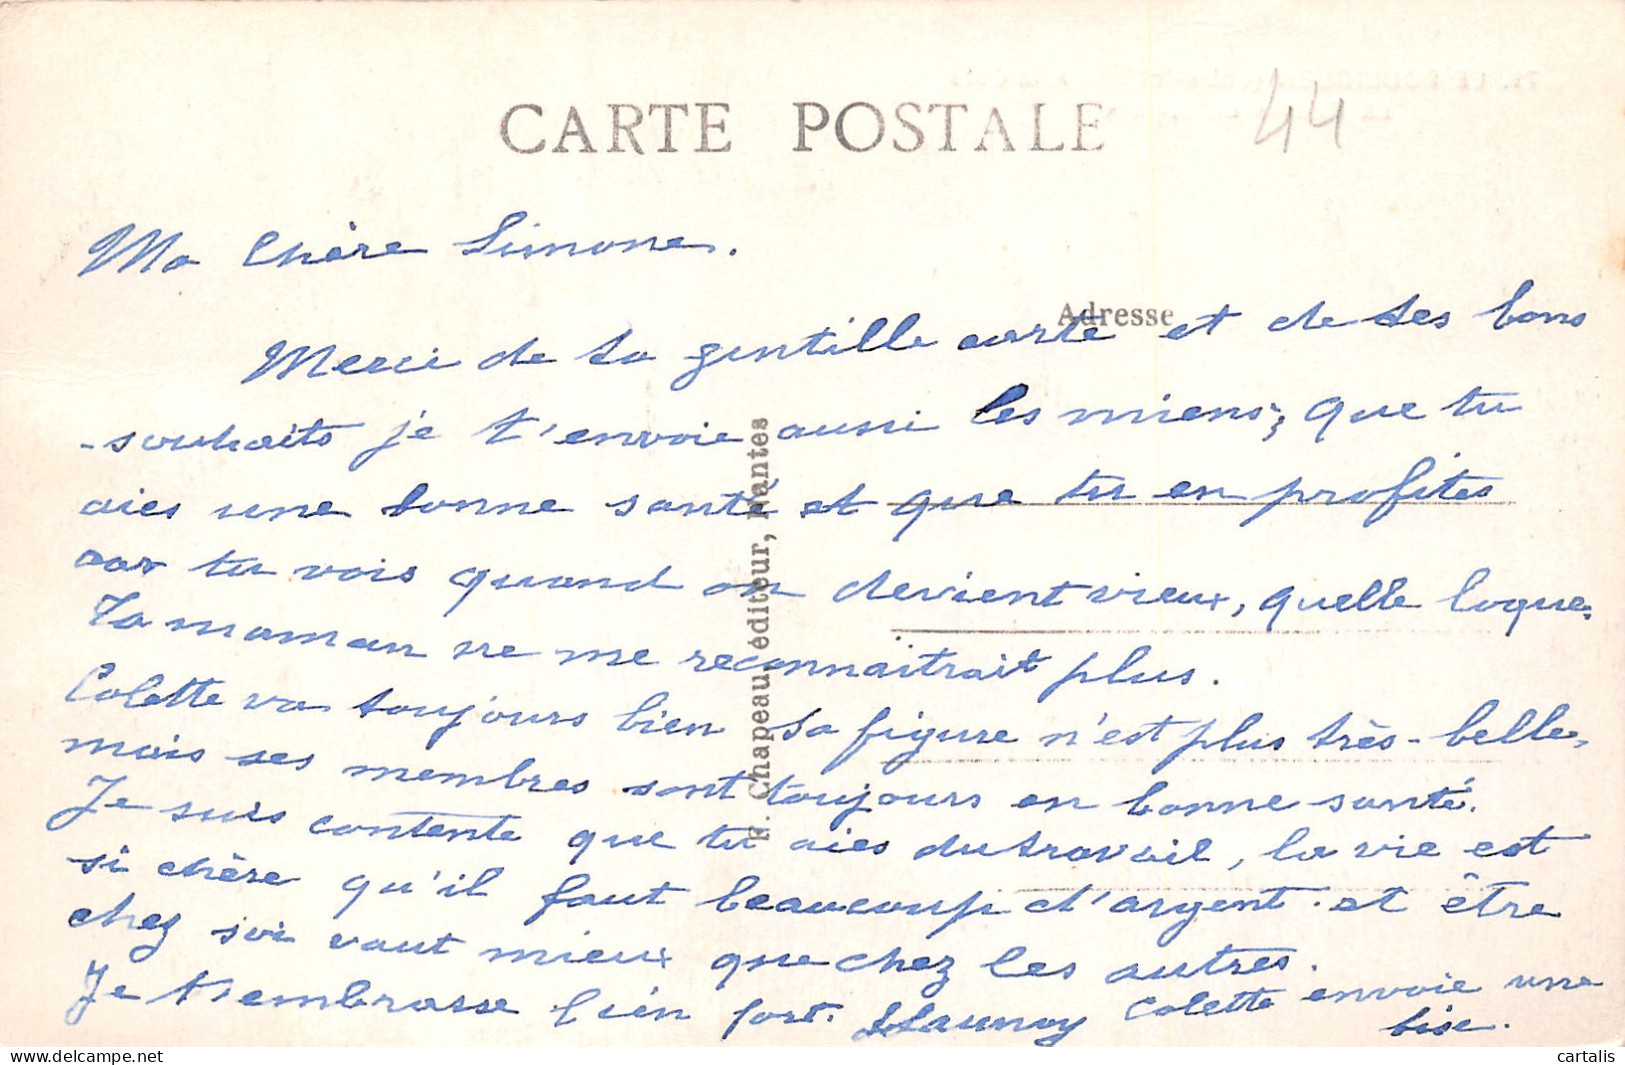 CARTE POSTALE
44
Ma Chère Simone.
Adresse
Merci de ta gentille carte et de tes bons
souhaits je t'envoie aussi les miens, que tu
aies une bonne santé et que tu en profites
car tu vois quand on devient vieux, quelle loque.
Ta maman ne me reconnaitrait plus.
Colette va toujours bien sa figure n'est plus très-belle,
mais ses membres sont toujours en bonne santé.
Je suis contente que tu aies du travail, la vie est
si chère qu'il faut beaucoup d'argent. et être
chez soi vaut mieux que chez les autres.
Je t'embrasse bien fort. Launay Colette envoie une
bise.
F. Chapeau, éditeur, Nantes
www.delcampe.net
cartalis